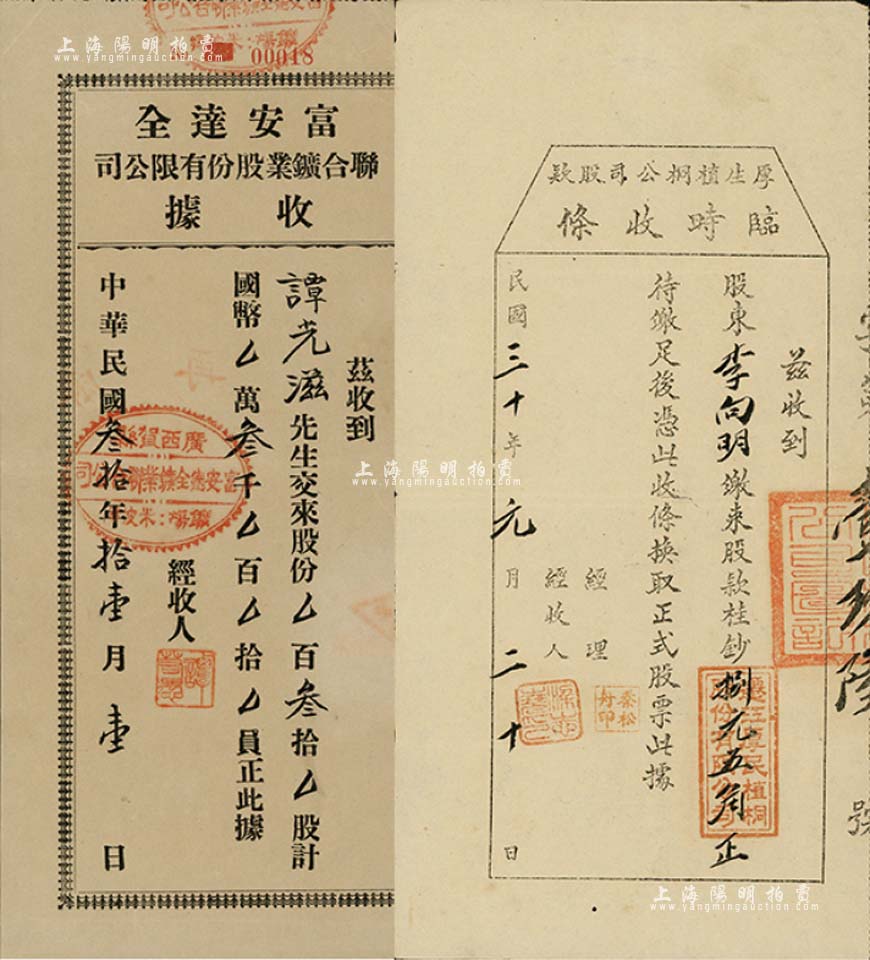 上海陽明拍賣
www.yangmingauction.com
00018
富安達全
聯合鑛業股份有限公司
收據
茲收到
譚光滋先生交來股份〇百叁拾〇股計
國幣〇萬叁千〇百〇拾〇員正此據
經收人
中華民國叁拾年拾壹月壹日
廣西賀縣
厚生植桐公司股款
臨時收條
茲收到
股東李向明繳來股款桂鈔捌元五角正
待繳足後憑此收條換取正式股票此據
經理
秦松舟印
經收人
民國三十年元月二十日
號
上海陽明拍賣
www.yangmingauction.com
上海陽明拍賣
www.yangmingauction.com